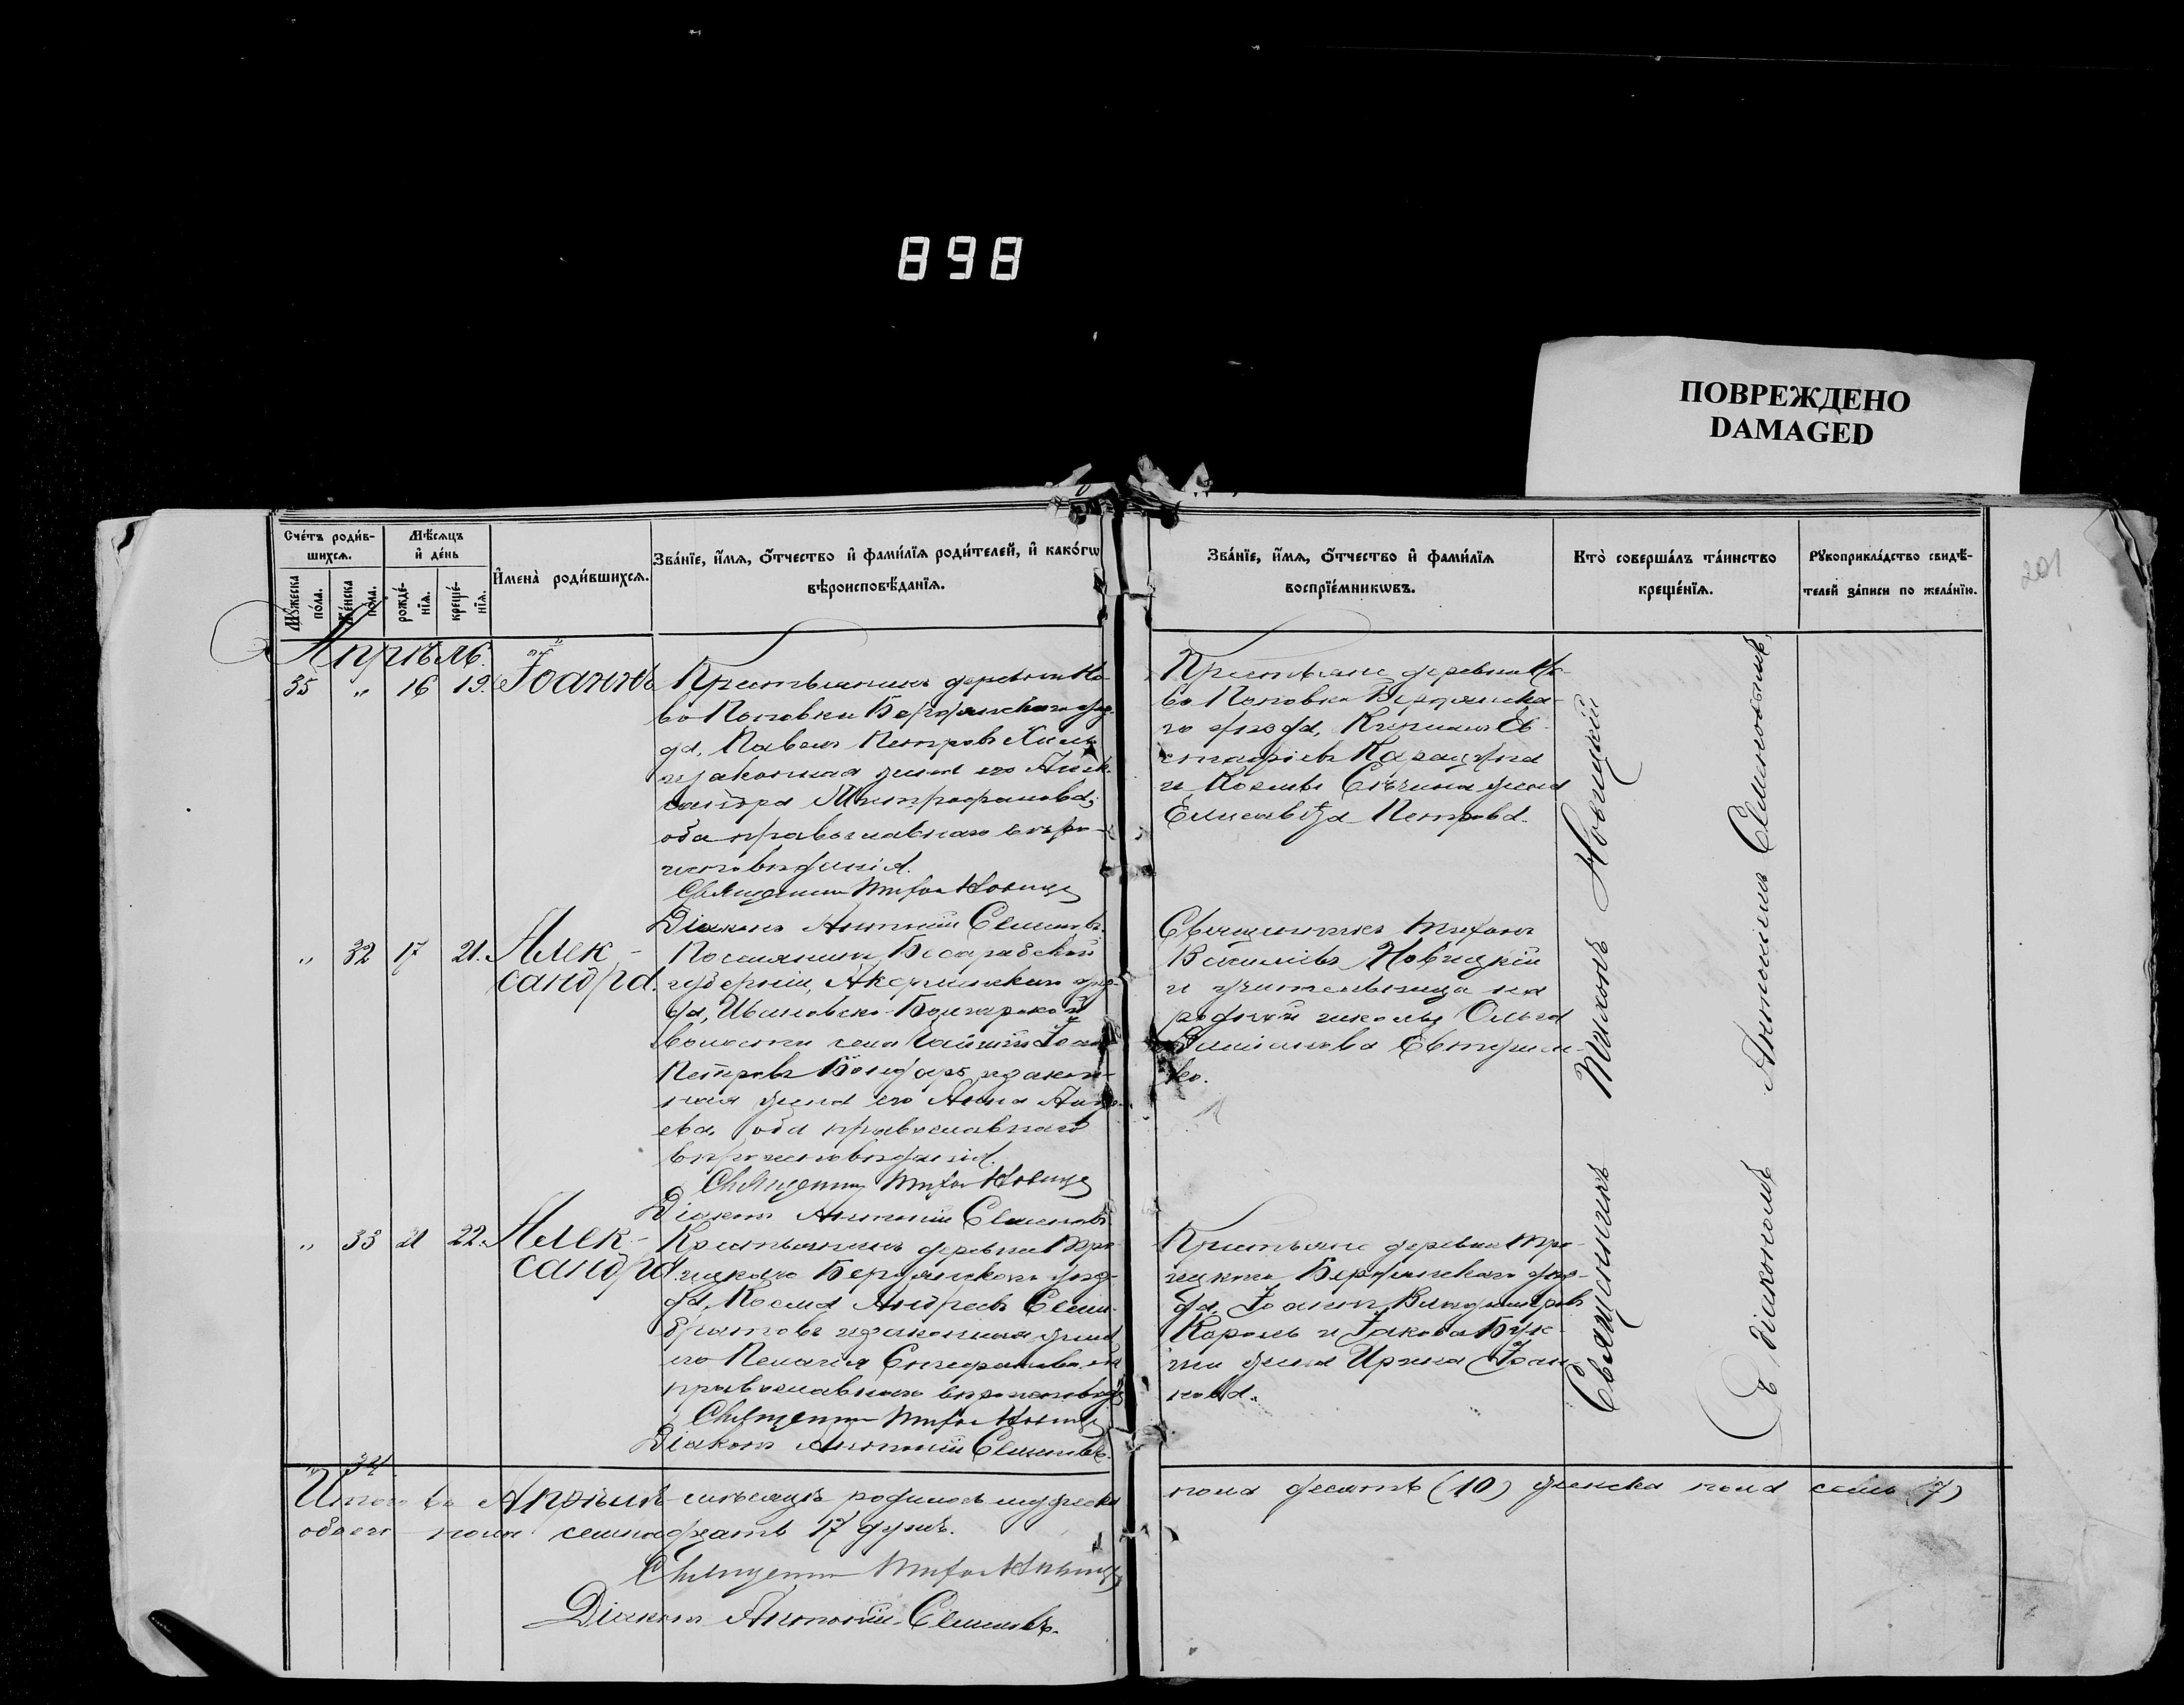 898
ПОВРЕЖДЕНО
DAMAGED
201
Счéтъ роди́в-
шихся.
Мѣ́сяцъ
и҆ де́нь
Мꙋ́жеска по́ла.
Же́нска по́ла.
рожде́-
нїѧ.
креще́-
нїѧ.
И҆мена̀ роди́вшихсѧ.
Зва́нїе, и҆́мѧ, ѻ҆́тчество и҆ фами́лїѧ роди́телей, и҆ како́гѡ
вѣроисповѣ́данїѧ.
Зва́нїе, и҆́мѧ, ѻ҆́тчество и҆ фами́лїѧ
воспрїе́мникѡвъ.
Кто̀ соверша́лъ та́инство
креще́нїѧ.
Рꙋкоприкла́дство свидѣ́-
телей за́писи по жела́нїю.
Апрѣль.
35 „ 16 19. Іоаннъ
Крестьянинъ деревни Но-
во Поповки Бердянскаго уѣз-
да, Павелъ Петровъ
и законная жена его Алек-
сандра Митрофанова,
оба православнаго вѣро-
исповѣданія.
Священник Тихон Новицк
Діаконъ Антоній Селиновъ.
Крестьяне деревни Но-
во Поповки Бердянска-
го уѣзда, Ев-
стафіевъ
и Космы жена
Елисавета Петрова.
„ 32 17 21. Алек-
сандра.
Поселянинъ Бесарабской
губерніи, Аккерманскаго уѣз-
да, Ивановско-Болгарской
волости села Іоан
Петровъ и закон-
ная жена его Анна
ева, оба православнаго
вѣроисповѣданія.
Священник Тихон Новицк
Діаконъ Антоній Селиновъ
Священникъ Тихонъ
Васильевъ Новицкій
и учительница на-
родной школы Ольга
ко.
„ 33 21 22. Алек-
сандра
Крестьянинъ деревни Тро-
ицкаго Бердянскаго уѣз-
да, Косма Андреевъ Селин-
братовъ и законная жена
его Пелагія оба
православнаго вѣроисповѣд
Священник Тихон Новицк
Діаконъ Антоній Селиновъ.
Крестьяне деревни Тро-
ицкаго Бердянскаго уѣз-
да, Іоаннъ Владиміровъ
Король и Іакова
жена Ирина Іоан-
нова.
Священникъ Тихонъ Новицкій
Съ діакономъ Антоніемъ Селиновымъ.
34
Итого въ Апрѣлѣ мѣсяцѣ родилось мужеска
пола десять (10) женска пола семь (7)
обоего пола семнадцать 17 душъ.
Священник Тихон Новицк
Діаконъ Антоній Селиновъ.